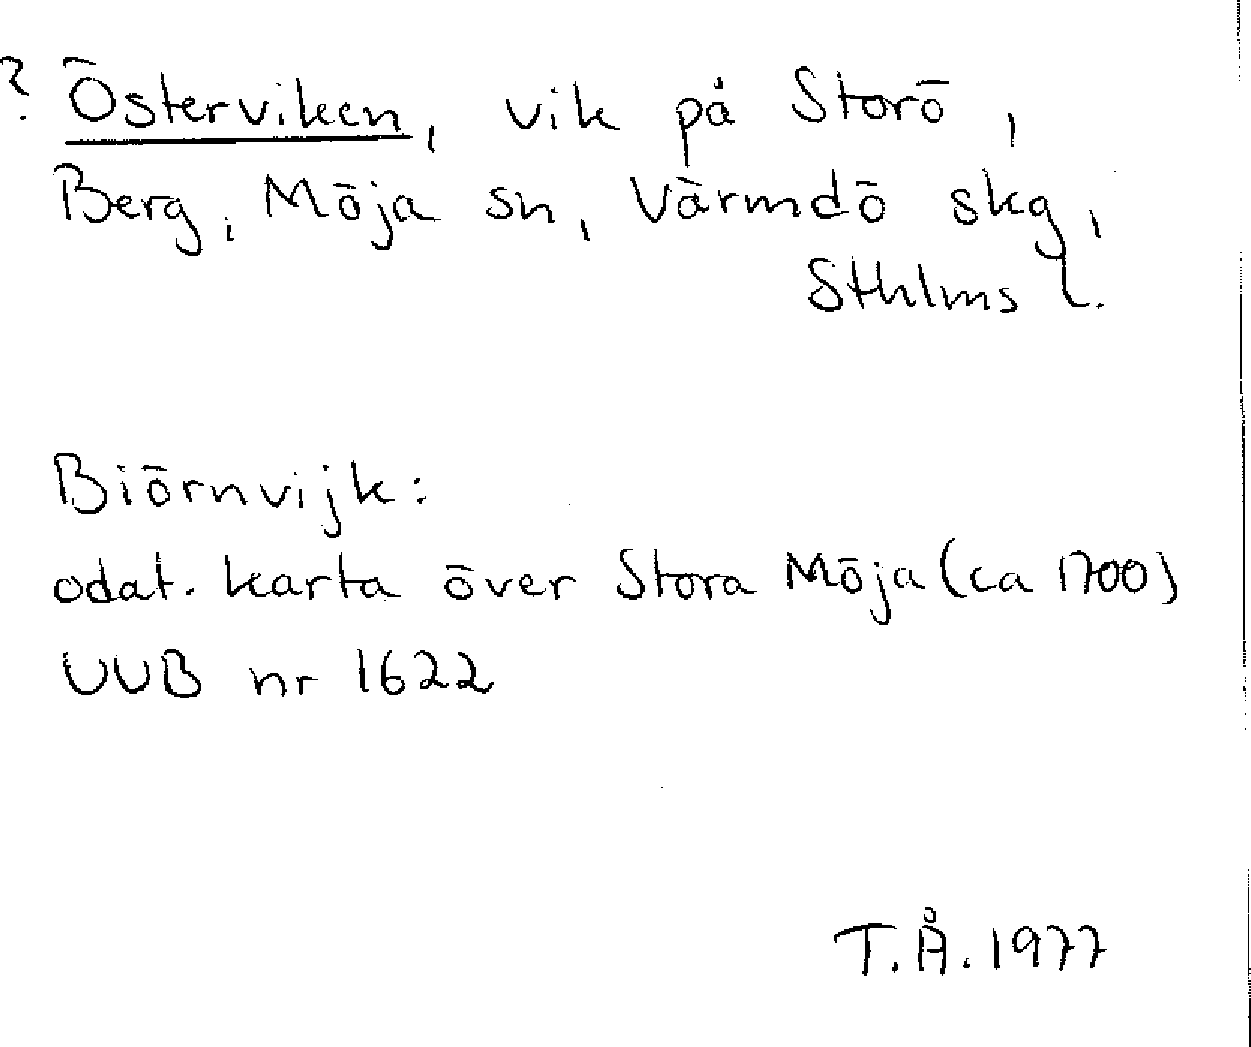 ? Österviken, vik på Storö,
Berg, Möja sn, Värmdö skg,
Sthlms l.
Biörnvijk:
odat. karta över Stora Möja (ca 1700)
UUB nr 1622
T.Å. 1977